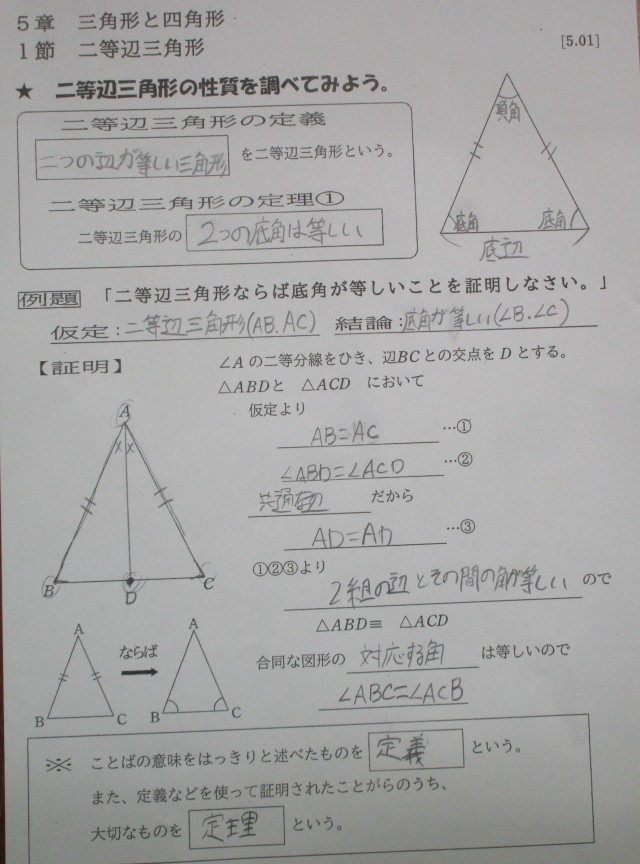 5章 三角形と四角形
1節 二等辺三角形
[5.01]
★ 二等辺三角形の性質を調べてみよう。
二等辺三角形の定義
二つの辺が等しい三角形 を二等辺三角形という。
二等辺三角形の定理①
二等辺三角形の 2つの底角は等しい
頂角
底角 底角
底辺
例題 「二等辺三角形ならば底角が等しいことを証明しなさい。」
仮定:二等辺三角形(AB.AC) 結論:底角が等しい(∠B.∠C)
【証明】
∠Aの二等分線をひき、辺BCとの交点をDとする。
△ABDと △ACD において
仮定より
AB=AC …①
∠ABD=∠ACD …②
共通な辺 だから
AD=AD …③
①②③より
2組の辺とその間の角が等しい ので
△ABD≡ △ACD
合同な図形の 対応する角 は等しいので
∠ABC=∠ACB
A
B D C
A ならば A
B C B C
※ ことばの意味をはっきりと述べたものを 定義 という。
また、定義などを使って証明されたことがらのうち、
大切なものを 定理 という。